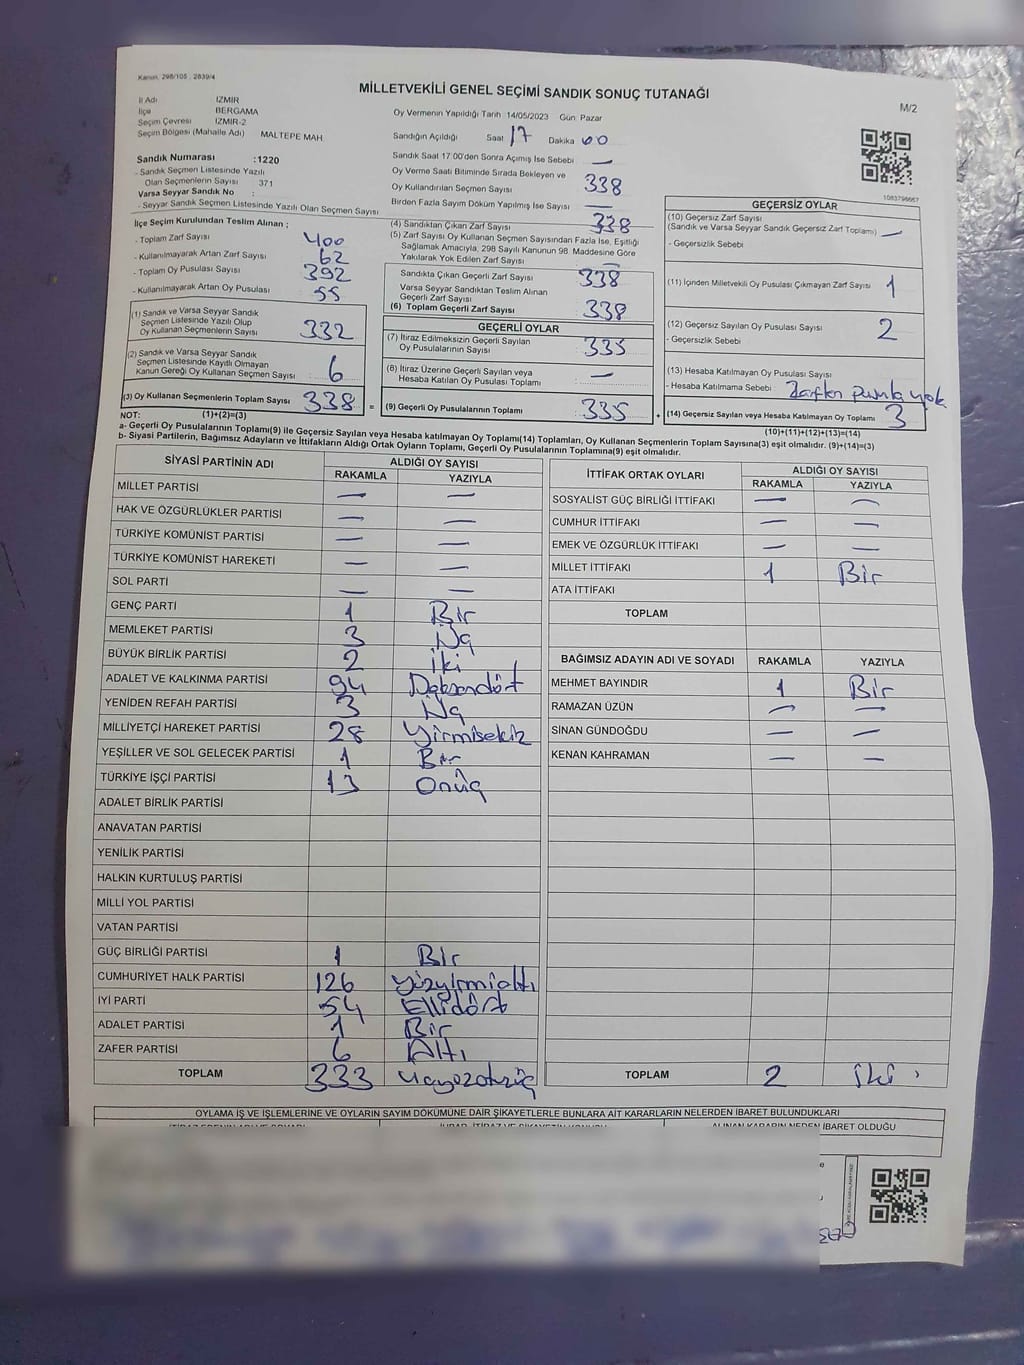 Kanun. 298/105 ; 2839/4
MİLLETVEKİLİ GENEL SEÇİMİ SANDIK SONUÇ TUTANAĞI
M/2
İl Adı İZMİR
İlçe BERGAMA
Seçim Çevresi İZMİR-2
Seçim Bölgesi (Mahalle Adı) MALTEPE MAH
Oy Vermenin Yapıldığı Tarih 14/05/2023 Gün: Pazar
Sandığın Açıldığı Saat 17 Dakika 00
Sandık Saat 17:00'den Sonra Açımış İse Sebebi —
Oy Verme Saati Bitiminde Sırada Bekleyen ve
Oy Kullandırılan Seçmen Sayısı 338
Birden Fazla Sayım Döküm Yapılmış İse Sayısı —
Sandık Numarası :1220
- Sandık Seçmen Listesinde Yazılı
Olan Seçmenlerin Sayısı 371
Varsa Seyyar Sandık No :
- Seyyar Sandık Seçmen Listesinde Yazılı Olan Seçmen Sayısı
1083798667
İlçe Seçim Kurulundan Teslim Alınan ;
- Toplam Zarf Sayısı 400
- Kullanılmayarak Artan Zarf Sayısı 62
- Toplam Oy Pusulası Sayısı 392
- Kullanılmayarak Artan Oy Pusulası 55
(1) Sandık ve Varsa Seyyar Sandık
Seçmen Listesinde Yazılı Olup
Oy Kullanan Seçmenlerin Sayısı 332
(2) Sandık ve Varsa Seyyar Sandık
Seçmen Listesinde Kayıtlı Olmayan
Kanun Gereği Oy Kullanan Seçmen Sayısı : 6
(3) Oy Kullanan Seçmenlerin Toplam Sayısı 338 =
(4) Sandıktan Çıkan Zarf Sayısı 338
(5) Zarf Sayısı Oy Kullanan Seçmen Sayısından Fazla İse, Eşitliği
Sağlamak Amacıyla, 298 Sayılı Kanunun 98. Maddesine Göre
Yakılarak Yok Edilen Zarf Sayısı —
Sandıkta Çıkan Geçerli Zarf Sayısı 338
Varsa Seyyar Sandıktan Teslim Alınan
Geçerli Zarf Sayısı
(6) Toplam Geçerli Zarf Sayısı 338
GEÇERLİ OYLAR
(7) İtiraz Edilmeksizin Geçerli Sayılan
Oy Pusulalarının Sayısı 335
(8) İtiraz Üzerine Geçerli Sayılan veya
Hesaba Katılan Oy Pusulası Toplamı —
(9) Geçerli Oy Pusulalarının Toplamı 335 +
GEÇERSİZ OYLAR
(10) Geçersiz Zarf Sayısı
(Sandık ve Varsa Seyyar Sandık Geçersiz Zarf Toplamı) —
- Geçersizlik Sebebi
(11) İçinden Milletvekili Oy Pusulası Çıkmayan Zarf Sayısı 1
(12) Geçersiz Sayılan Oy Pusulası Sayısı 2
- Geçersizlik Sebebi
(13) Hesaba Katılmayan Oy Pusulası Sayısı
- Hesaba Katılmama Sebebi : Zarftan pusula yok
(14) Geçersiz Sayılan veya Hesaba Katılmayan Oy Toplamı 3
NOT: (1)+(2)=(3) (10)+(11)+(12)+(13)=(14)
a- Geçerli Oy Pusulalarının Toplamı(9) ile Geçersiz Sayılan veya Hesaba katılmayan Oy Toplamı(14) Toplamları, Oy Kullanan Seçmenlerin Toplam Sayısına(3) eşit olmalıdır. (9)+(14)=(3)
b- Siyasi Partilerin, Bağımsız Adayların ve İttifakların Aldığı Ortak Oyların Toplamı, Geçerli Oy Pusulalarının Toplamına(9) eşit olmalıdır.
SİYASİ PARTİNİN ADI ALDIĞI OY SAYISI
RAKAMLA YAZIYLA
MİLLET PARTİSİ — —
HAK VE ÖZGÜRLÜKLER PARTİSİ — —
TÜRKİYE KOMÜNİST PARTİSİ — —
TÜRKİYE KOMÜNİST HAREKETİ — —
SOL PARTİ — —
GENÇ PARTİ 1 Bir
MEMLEKET PARTİSİ 3 Üç
BÜYÜK BİRLİK PARTİSİ 2 İki
ADALET VE KALKINMA PARTİSİ 94 Doksandört
YENİDEN REFAH PARTİSİ 3 Üç
MİLLİYETÇİ HAREKET PARTİSİ 28 Yirmisekiz
YEŞİLLER VE SOL GELECEK PARTİSİ 1 Bir
TÜRKİYE İŞÇİ PARTİSİ 13 Onüç
ADALET BİRLİK PARTİSİ
ANAVATAN PARTİSİ
YENİLİK PARTİSİ
HALKIN KURTULUŞ PARTİSİ
MİLLİ YOL PARTİSİ
VATAN PARTİSİ
GÜÇ BİRLİĞİ PARTİSİ 1 Bir
CUMHURİYET HALK PARTİSİ 126 yüzyirmialtı
İYİ PARTİ 54 Ellidört
ADALET PARTİSİ 1 Bir
ZAFER PARTİSİ 6 Altı
TOPLAM 333 üçyüzotuzüç
İTTİFAK ORTAK OYLARI ALDIĞI OY SAYISI
RAKAMLA YAZIYLA
SOSYALİST GÜÇ BİRLİĞİ İTTİFAKI — —
CUMHUR İTTİFAKI — —
EMEK VE ÖZGÜRLÜK İTTİFAKI — —
MİLLET İTTİFAKI 1 Bir
ATA İTTİFAKI
TOPLAM
BAĞIMSIZ ADAYIN ADI VE SOYADI RAKAMLA YAZIYLA
MEHMET BAYINDIR 1 Bir
RAMAZAN ÜZÜN — —
SİNAN GÜNDOĞDU — —
KENAN KAHRAMAN — —
TOPLAM 2 iki
OYLAMA İŞ VE İŞLEMLERİNE VE OYLARIN SAYIM DÖKÜMÜNE DAİR ŞİKAYETLERLE BUNLARA AİT KARARLARIN NELERDEN İBARET BULUNDUKLARI
ALINAN KARARIN NEDEN İBARET OLDUĞU